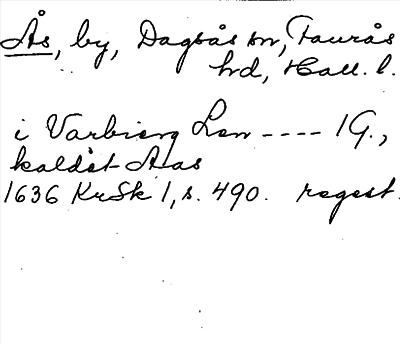 Ås, by, Dagsås sn, Faurås
hd, Hall. l.
i Varbierg Len ---- 1 G.,
kaldet Aas
1636 KrSk 1, s. 490. regest.